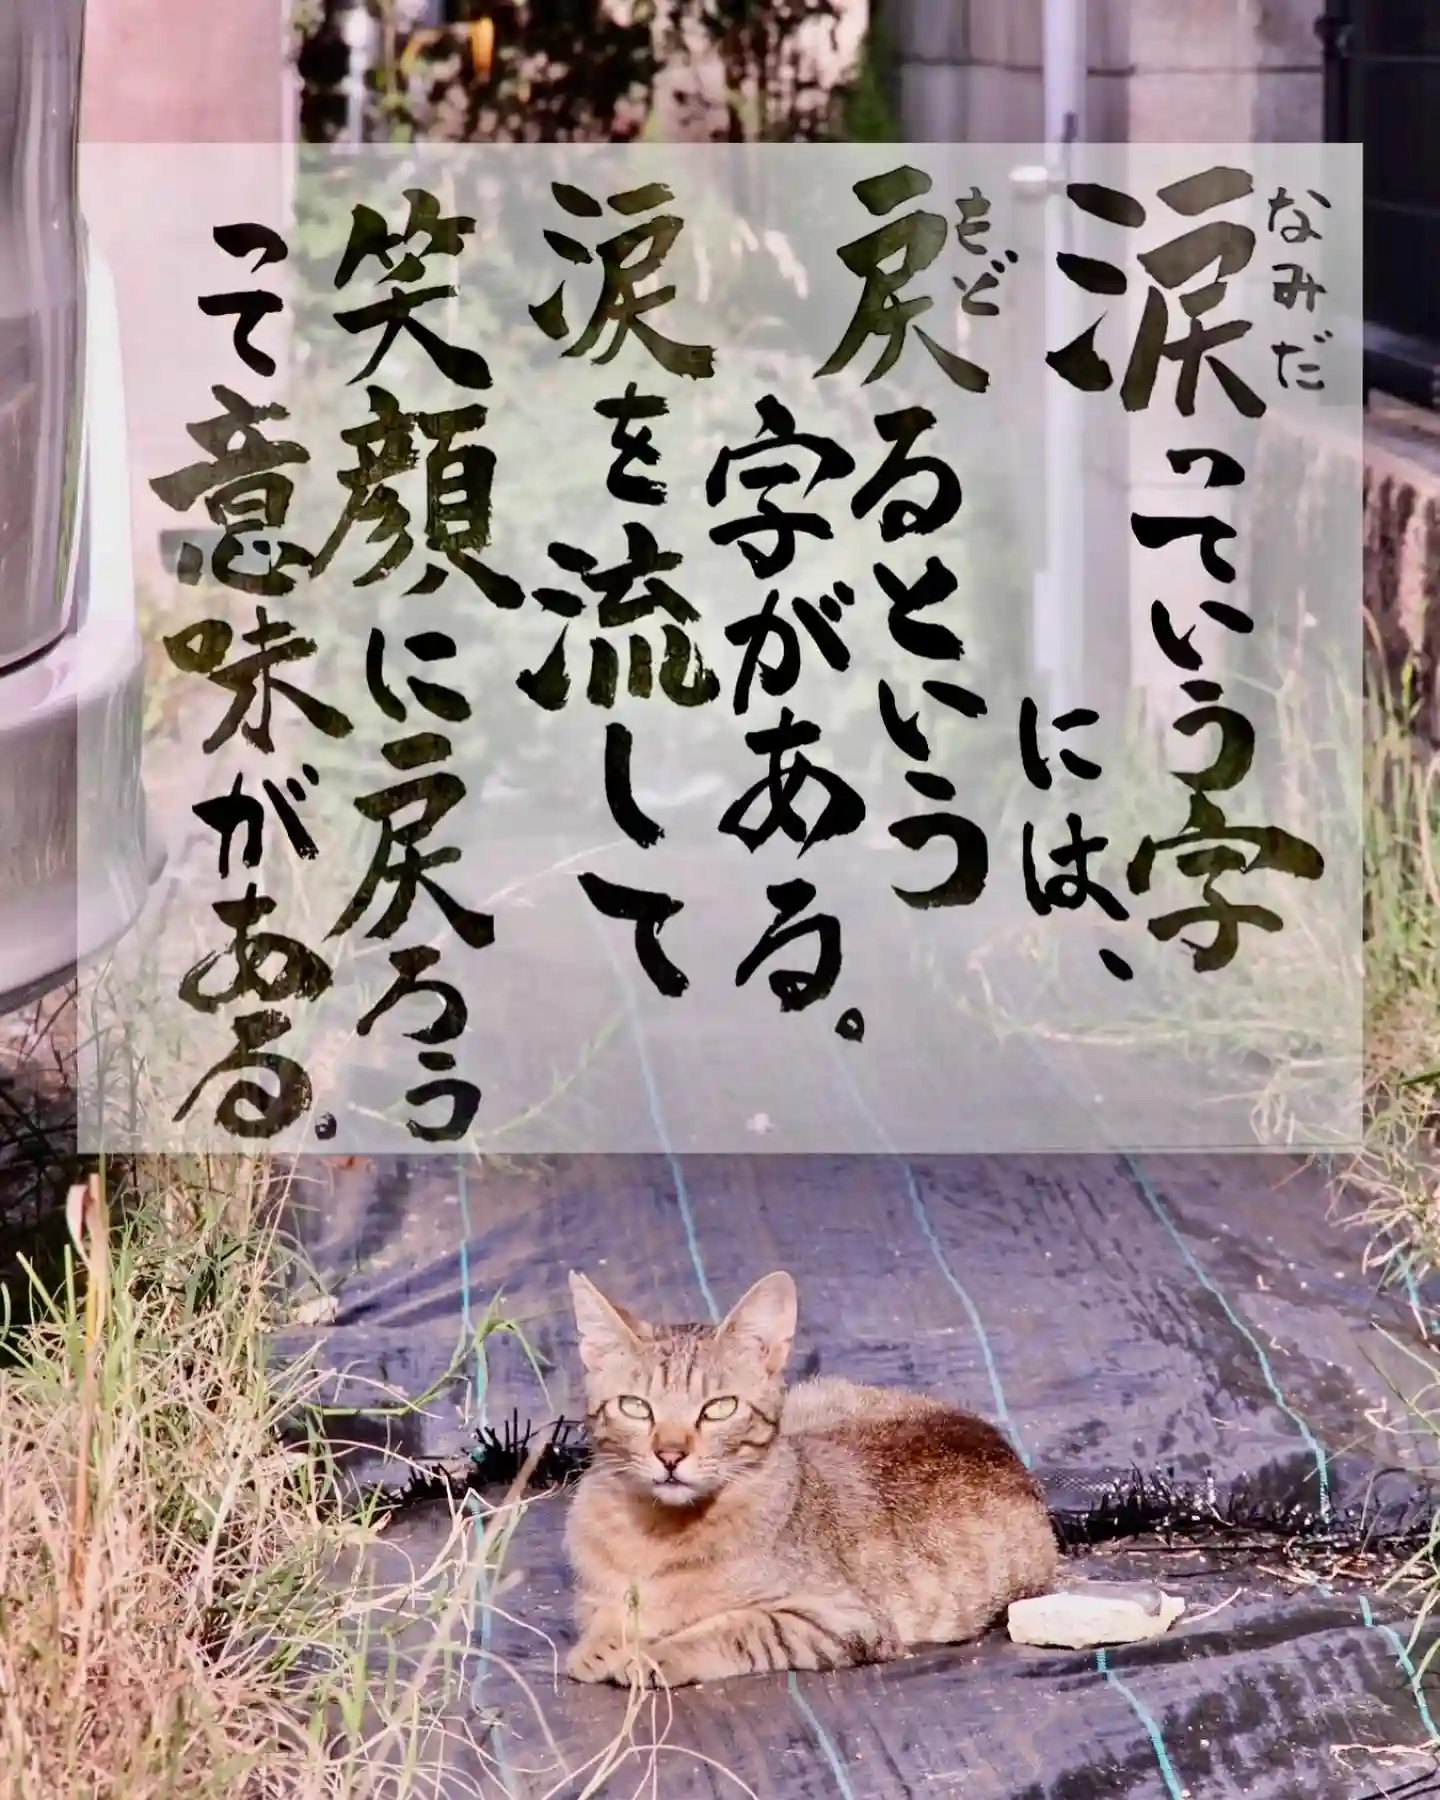 なみだ
涙っていう字
には、
もど
戻るという
字がある。
涙を流して
笑顔に戻ろう
って意味がある。